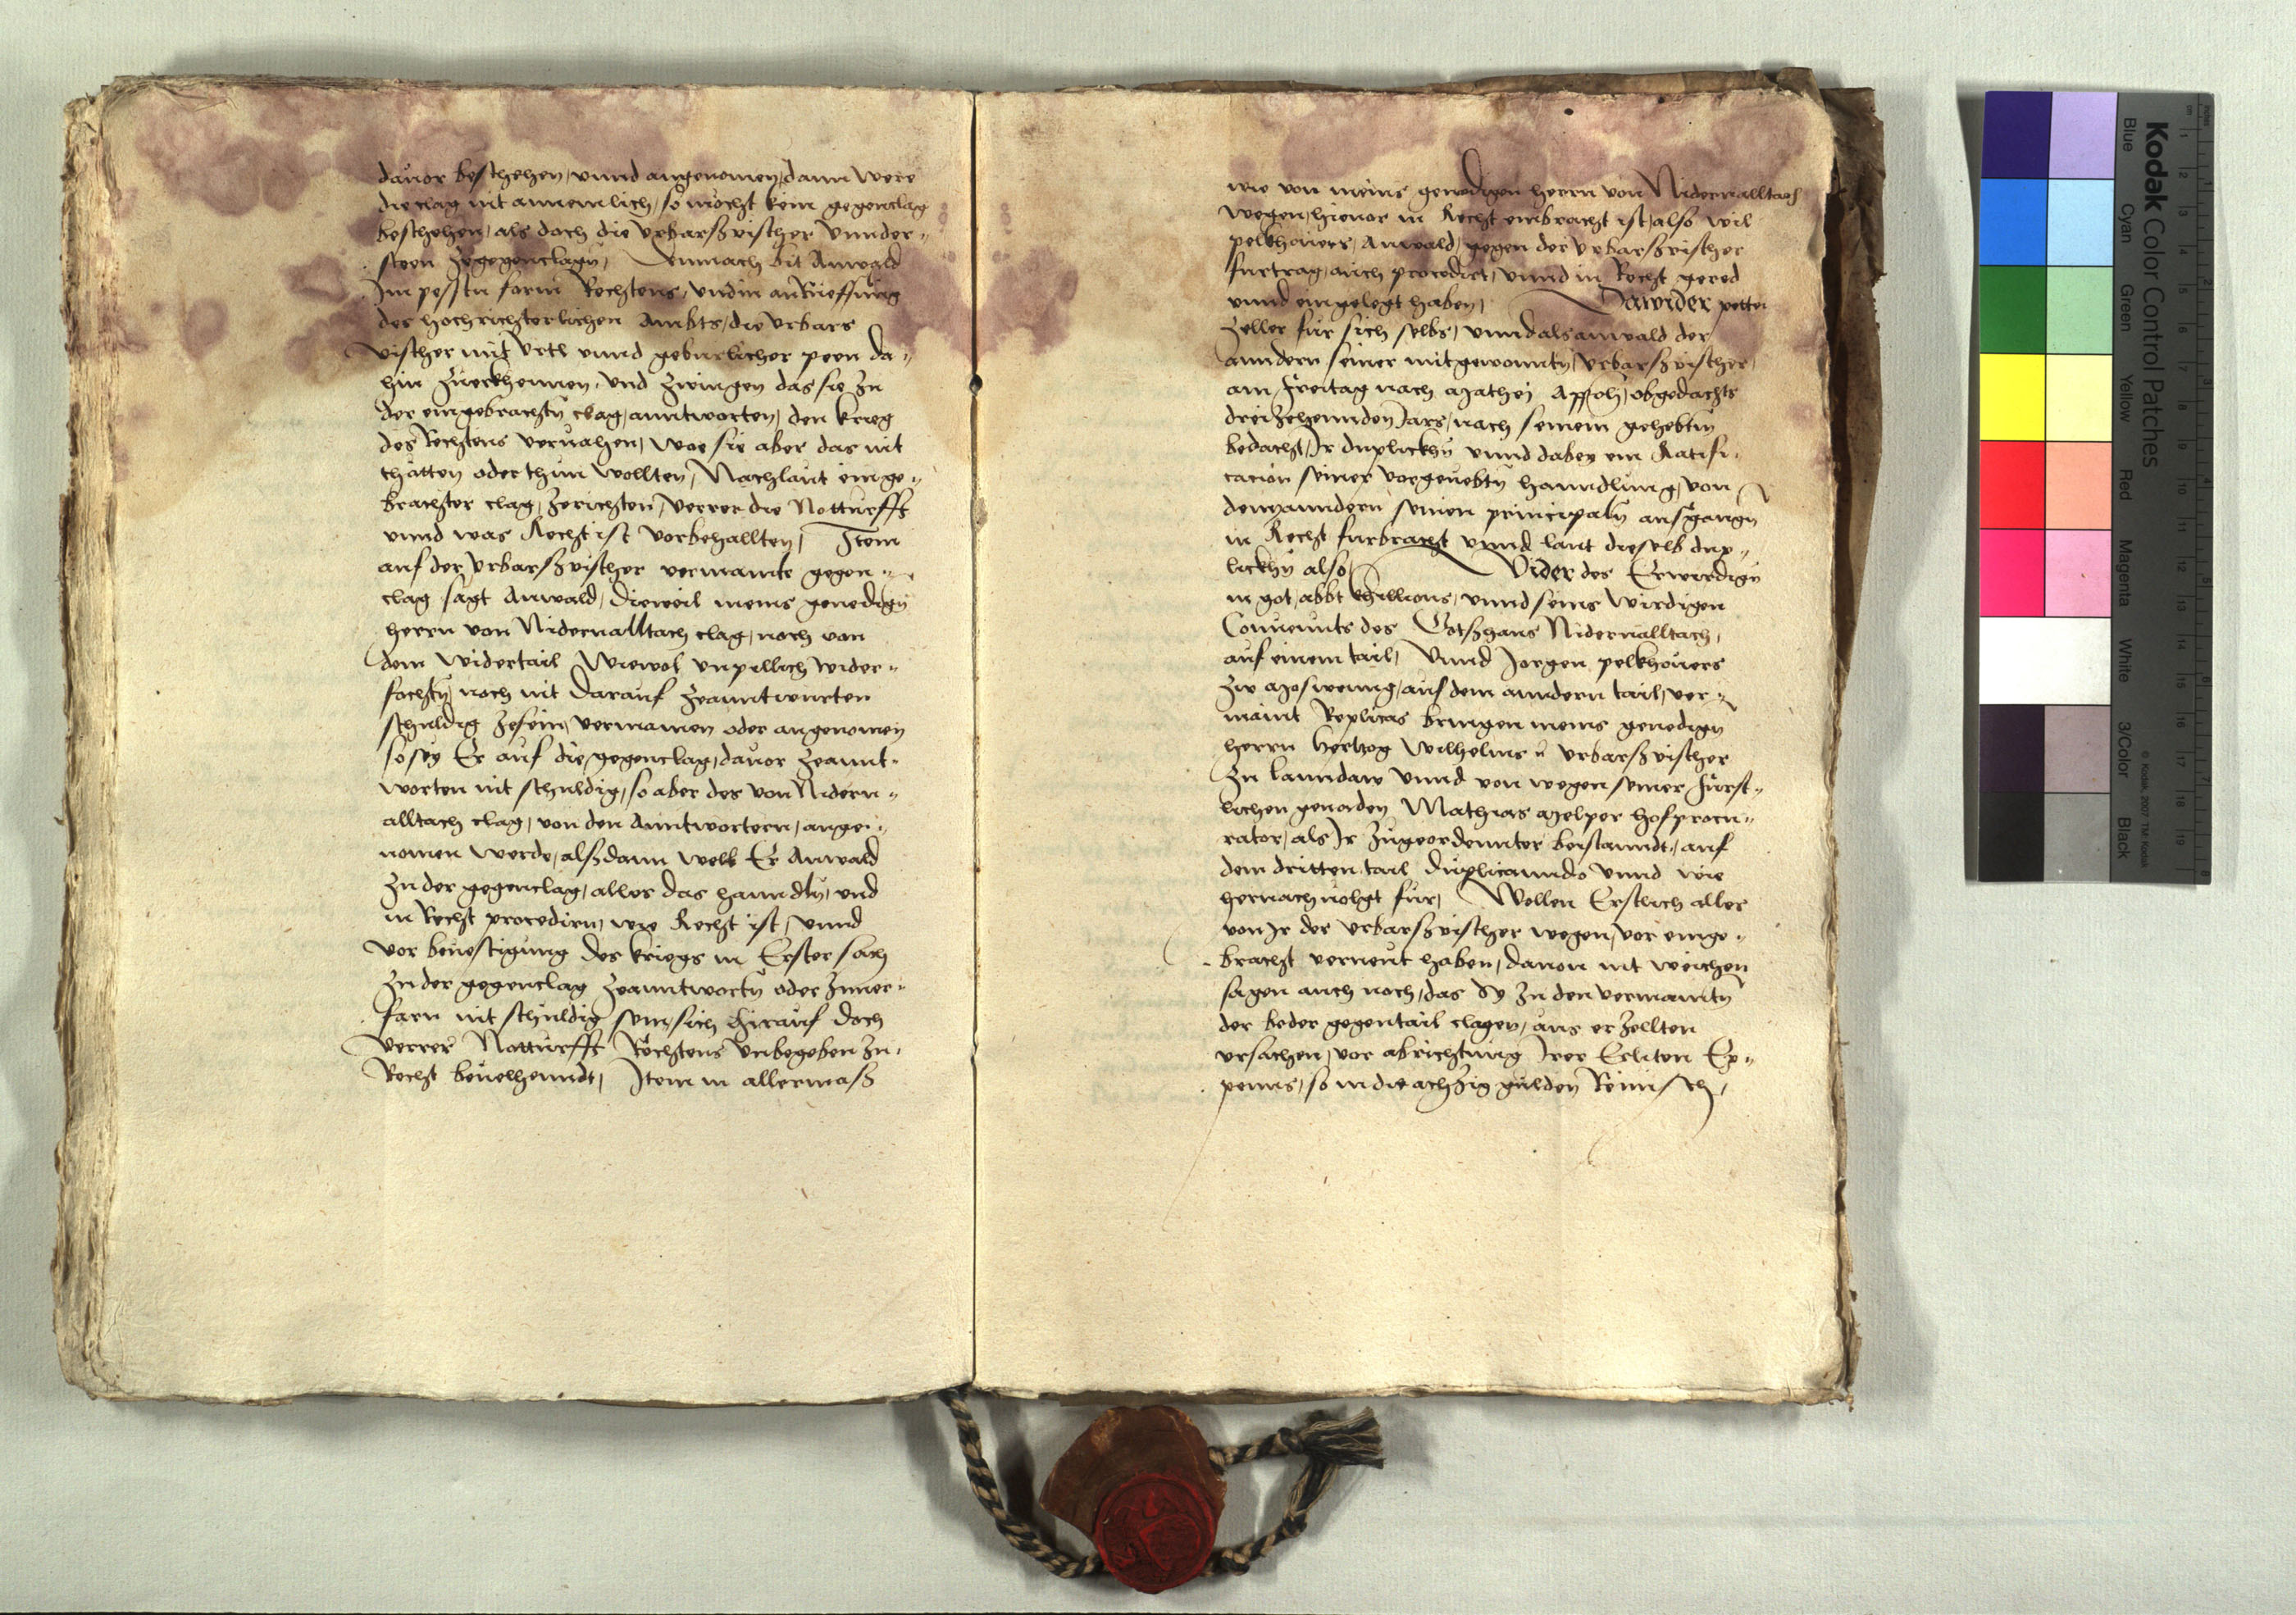 dauor beschehen, vnnd angenomen, dann were
die clag nit annemlich, so möcht kein gegenclag
beschehen, als doch die Vrbarsvischer vnnder-
steen zegegenclagn, Demnach bit Anwald
Im pesstn form Rechtens, vnd in anRueffung
des hochrichterlichen Ambts, die Vrbars
vischer mit Vrtl vnnd geburlicher peen da-
hin zuerkhennen, vnd zwingen das sie zu
der eingebrachtn clag, anntworten, den krieg
des Rechtens veruahen, Woe sie aber das nit
thätten oder thun wollten, Nachlaut einge-
brachter clag, zerichten, verrer die Notturfft
vnnd was Recht ist vorbehallten, Item
auf der Vrbarsvischer vermainte gegen-
clag sagt Anwald, dieweil meins genedign
herrn von Nidernalltach clag, noch von
dem widertail wiewol vnpillich wider-
fochtn, noch nit darauf zeanntwurten
schuldig zesein, vermainen oder angenomen
so sey Er auf die gegenclag, dauor zeannt-
worten nit schuldig, so aber des von Nidern-
alltach clag, von den Anntwortern, ange-
nomen werde, alsdann well Er Anwald
zu der gegenclag, alles das hanndln, vnd
in Recht procedirn, wie Recht ist, vnnd
vor beuestigung des kriegs in Erster sach
zu der gegenclag zeanntwortn oder zuuer-
farn nit schuldig sein, sich hirauf doch
verrer Notturfft Rechtens vnbegeben zu
Recht beuelhenndt, Item in allermass
wie von meins genedigen herrn von Nidernalltach
wegen, hieuor in Recht einbracht ist, also wil
pelkhouers, Anwald, gegen der Vrbarsvischer
furtrag, auch procedirt, vnnd in Recht gered
vnnd eingelegt haben, Dawider petter
Zeller für sich selbs, vnnd als anwald der
anndern seiner mitgewonntn, Vrbarsvischer,
am Freitag nach Mathei Appoli, obgedachts
dreizehennden Jars, nach seinem gehebtn
bedacht, Ir duplickhn vnnd dabey ein Ratifi-
cacion seiner voegeuebtn hanndlung, von
den anndern seinen principaln ausgangn
in Recht furbracht vnnd laut dieselb dup-
lickhn also, Wider des Erwirdign
in got, abbt Kyllions, vnnd seins wirdigen
Conuennts des Gotshaus Nidernalltach,
auf einem tail, Vnnd Jorgen pelkhouers
zw Moswenng, auf dem anndern tail, ver-
maint Replicas bringen meins genedign
herrn hertzog Wilhelms Vrbarsvischer
zu lanndaw vnnd von wegen seiner Fürst-
lichen genaden Mathias Melper hofprocu-
rator, als Ir zugeordennter beistanndt, auf
dem dritten tail duplicanndo vnnd wie
hernachuolgt für, Wollen Erstlich alles
von Ir der Vrbarsvischer wegen, vor einge-
bracht verneut haben, dauon nit weichen
sagen auch noch, das Sy zu den vermaintn
der beder gegentail clagen, aus erzellten
vrsachen, vor abrichtung Irer Erliten Ex-
penns, so in die achzig gulden Reinisch,
Kodak Color Control Patches
Blue
Cyan
Green
Yellow
Red
Magenta
White
3/Color
Black
© Kodak, 2007 TM: Kodak